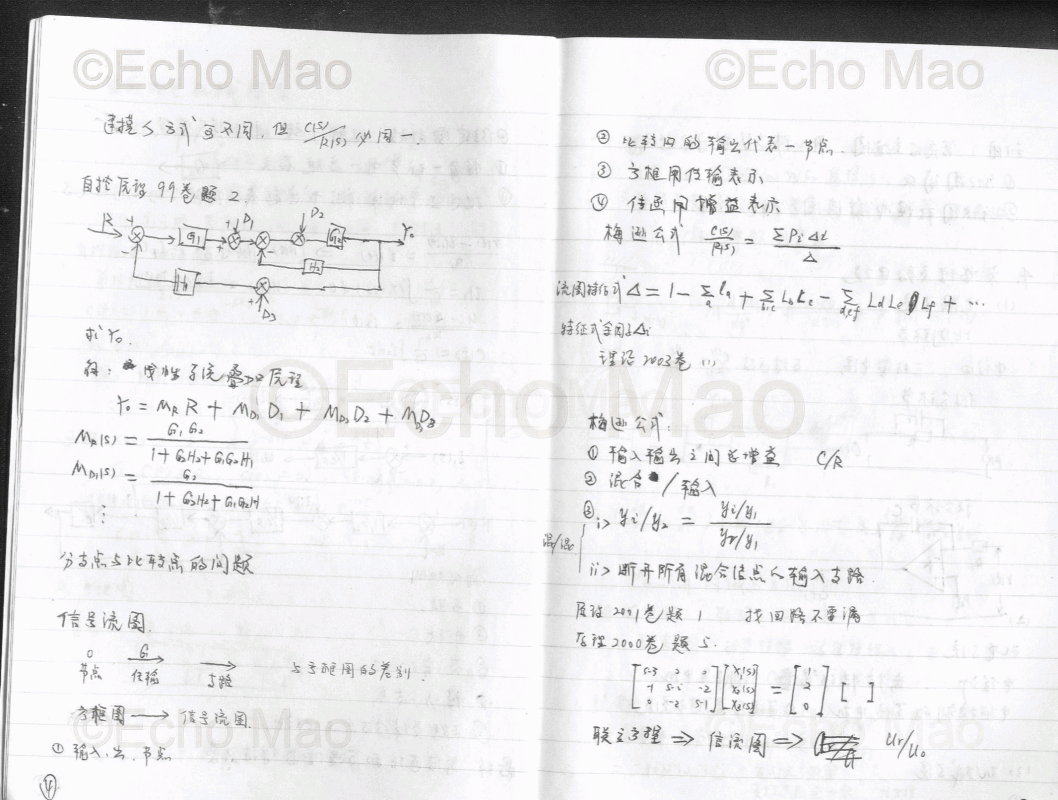 ©Echo Mao
©Echo Mao
建模 方式可不同, 但 C(S)/R(S) 必同一.
自控原理 99卷 题2
R + G1 + D1 + D2 G2 Y0
H2
H1
+ D3
求 Y0.
解: 线性系统叠加原理
Y0 = MR R + MD1 D1 + MD2 D2 + MD3 D3
MR(S) = G1 G2 / 1+G2H2+G1G2H1
MD1(S) = G2 / 1+G2H2+G1G2H
⋮
分支点与比较点的问题
信号流图.
O 节点 G 传输 → 支路 与方框图的差别.
方框图 → 信号流图.
① 输入、出、节点
④
② 比较点的输出代表一节点.
③ 方框用传输表示
④ 传函用增益表示
梅逊公式 C(S)/R(S) = ΣPiΔi / Δ
流图特征式 Δ = 1 - Σa La + Σbc Lb Lc - Σdef Ld Le Lf + …
特征式余因子Δi
理论2003卷 …
©Echo Mao
梅逊公式:
① 输入输出之间总增益 C/R
② 混合/输入
③ i> yi/y2 = yi/y1 / y2/y1
混/混
ii> 断开所有混合结点入输入支路.
原理2001卷题1 找回路不要漏
原理2000卷题5.
= [1 2 0] [ ]
联立方程 ⇒ 信流图 ⇒ Ur/U0
©Echo Mao
©Echo Mao